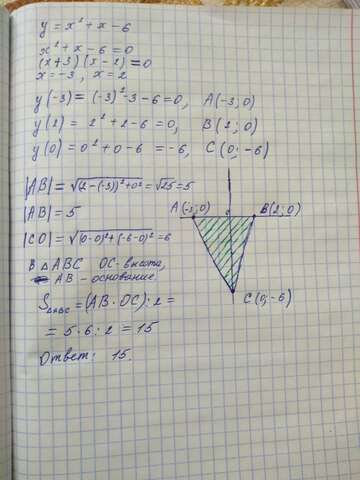 y = x² + x - 6
x² + x - 6 = 0
(x+3)(x-2) = 0
x = -3, x = 2
y(-3) = (-3)² - 3 - 6 = 0, A(-3; 0)
y(2) = 2² + 2 - 6 = 0, B(2; 0)
y(0) = 0² + 0 - 6 = -6, C(0; -6)
|AB| = √(2-(-3))² + 0² = √25 = 5
|AB| = 5
A(-3; 0) B(2; 0)
|CO| = √(0-0)² + (-6-0)² = 6
В △ABC OC - высота,
AB - основание
C(0; -6)
S△ABC = (AB · OC) : 2 =
= 5 · 6 : 2 = 15
Ответ: 15.